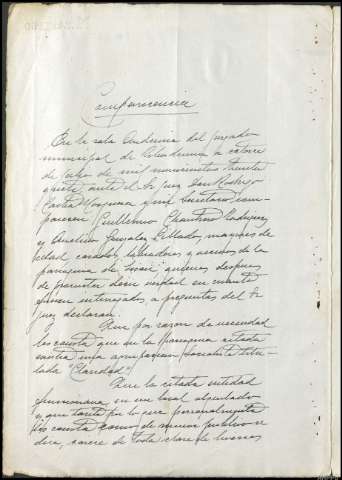 Comparecencia
En la sala Audiencia del Juzgado
municipal de a catorce
de Julio de mil novecientos treinta
y siete ante el Sr Juez Don Rodrigo
y mi Secretario com-
parecen Guillermo Rodriguez
y González mayores de
edad, casados, labradores y vecinos de la
parroquia de quienes después
de prometer decir verdad en cuanto
fueren interrogados, a preguntas del Sr
Juez declaran:
Que por razon de vecindad
les consta que en la Parroquia citada
existía una titu-
lada "Claridad".
Que la citada entidad
funcionaba en un local alquilado
y que tanto por lo que personalmente
les consta como de rumor público se
dice, carece de toda clase de bienes